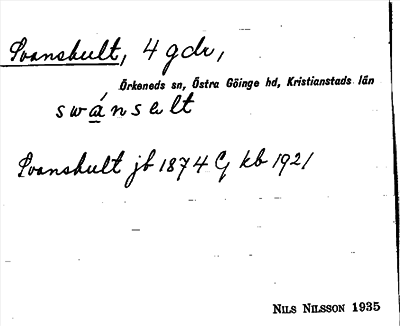 Svanshult, 4 gdr,
Örkeneds sn, Östra Göinge hd, Kristianstads län
swánselt
Svanshult jb 1874 kb 1921
NILS NILSSON 1935